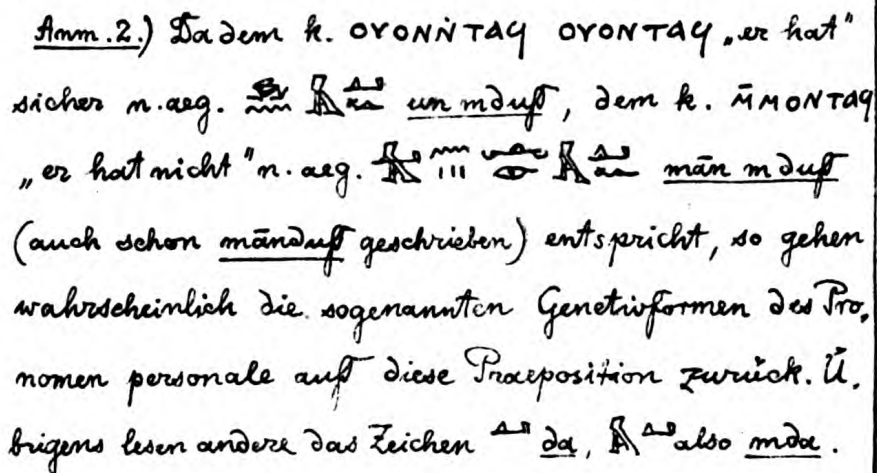 Anm. 2.) Da dem k. ⲞⲨⲞⲚⲚ̇ⲦⲀϤ ⲞⲨⲞⲚⲦⲀϤ „er hat"
sicher n. aeg. un mduf, dem k. ⲘⲘⲞⲚⲦⲀϤ
„er hat nicht" n. aeg. män m duf
(auch schon mänduf geschrieben) entspricht, so gehen
wahrscheinlich die sogenannten Genetivformen des Pro,
nomen personale auf diese Praeposition zurück. Ü,
brigens lesen andere das Zeichen da, also mda.